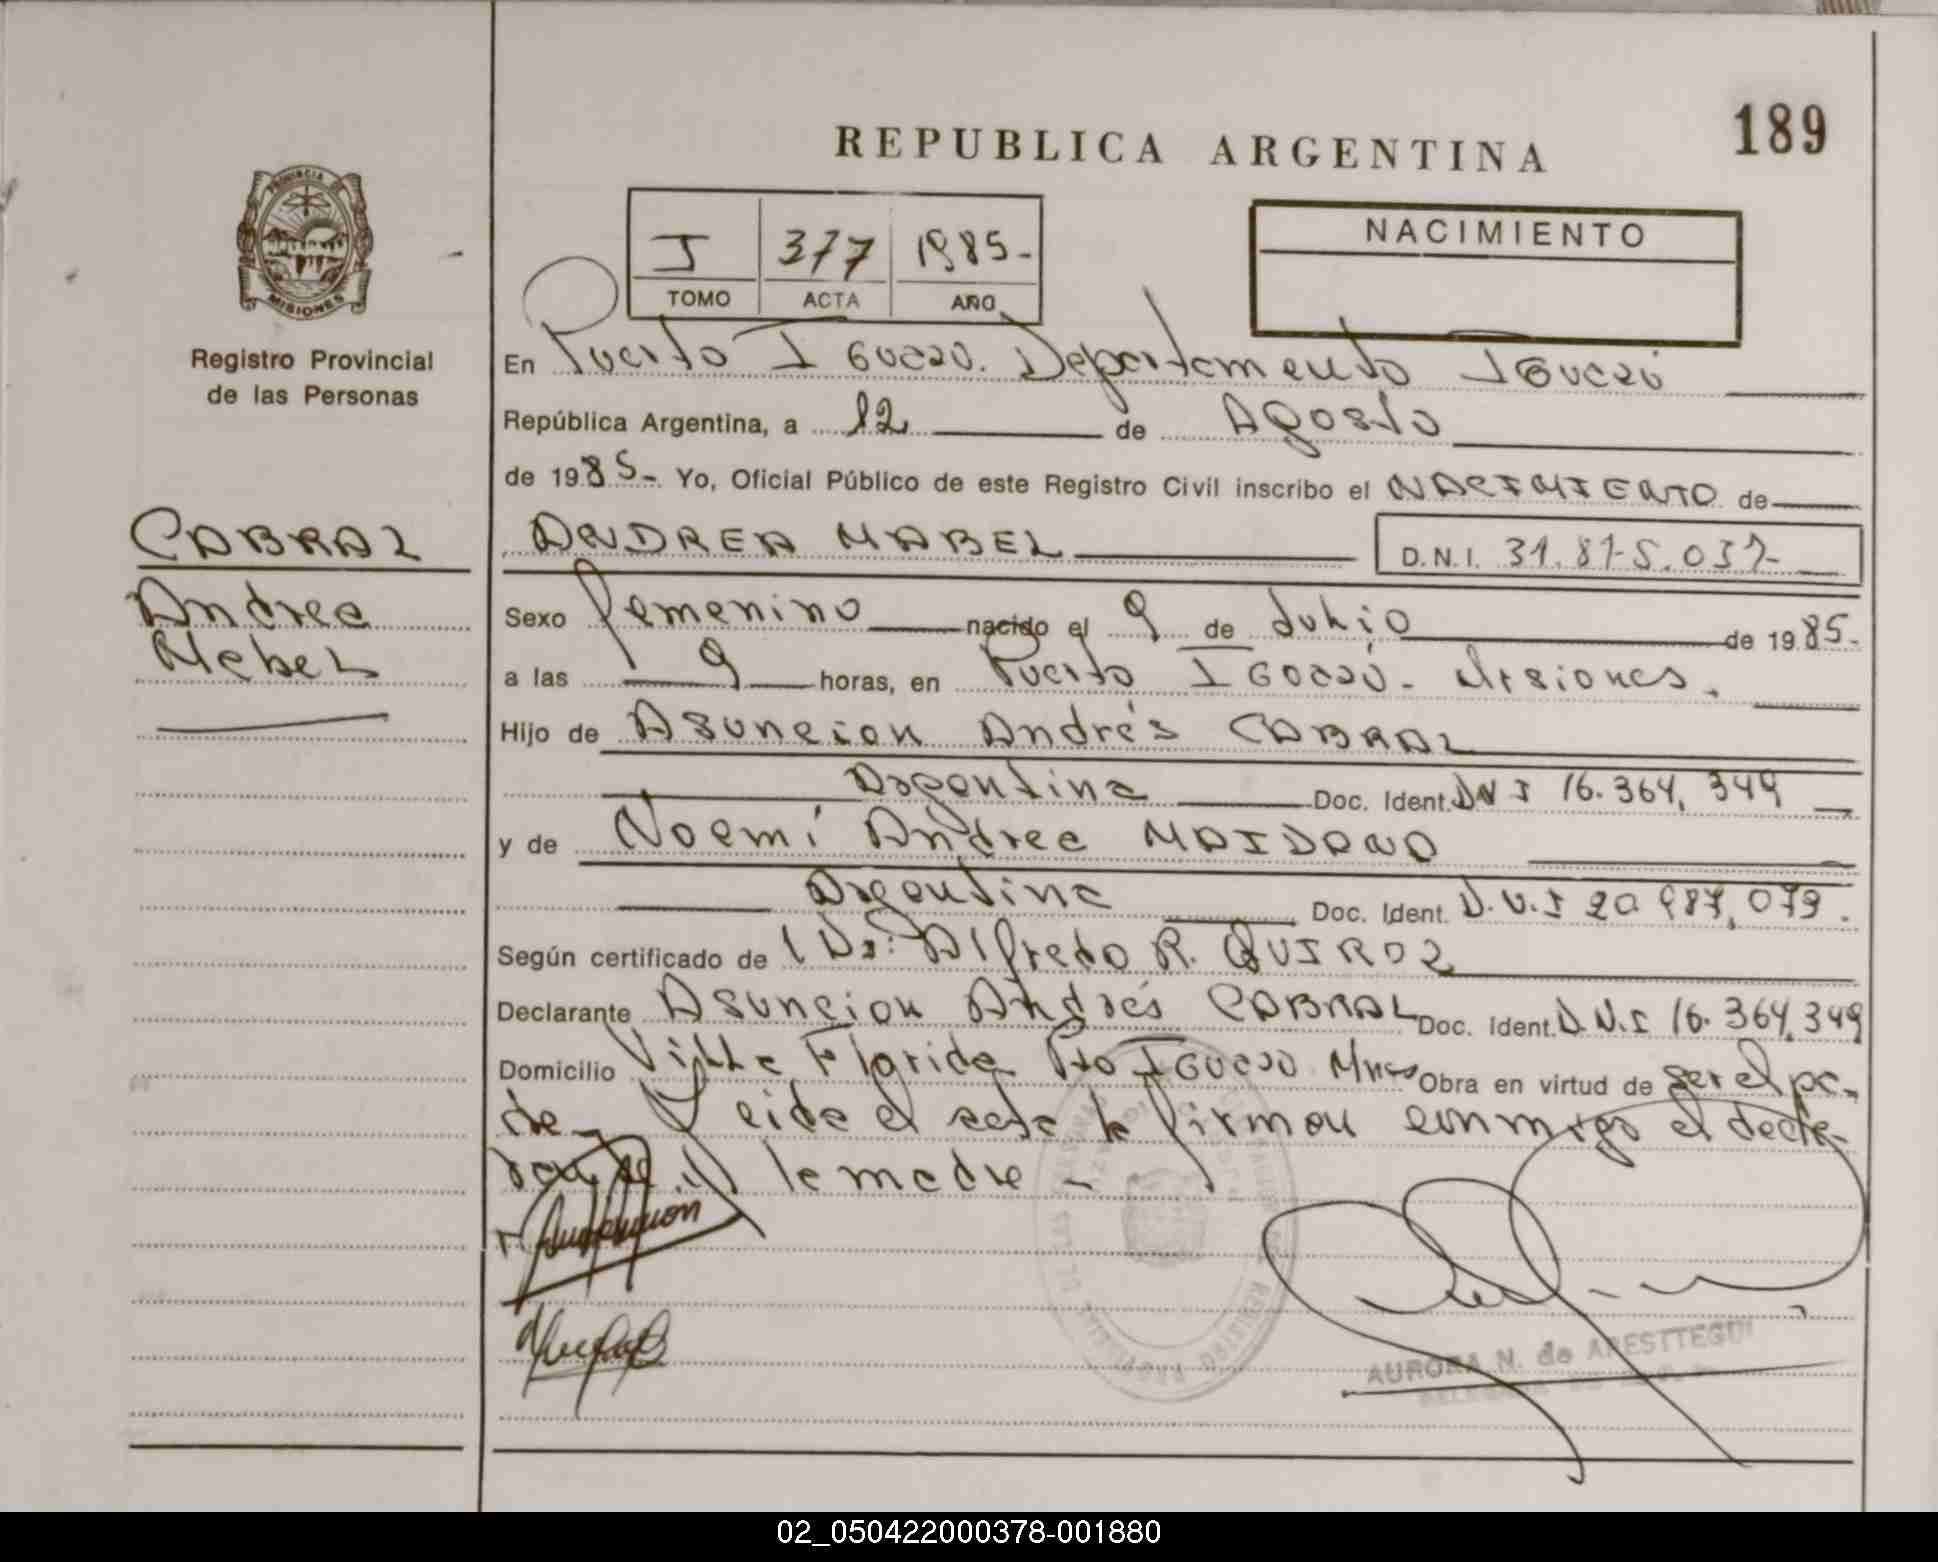 189
REPUBLICA ARGENTINA
PROVINCIA DE
MISIONES
Registro Provincial
de las Personas
CABRAL
Andrea
Mabel
I 377 1985-
TOMO ACTA AÑO
NACIMIENTO
En Puerto Iguazú. Departamento Iguazú
República Argentina, a 12 de Agosto
de 1985- Yo, Oficial Público de este Registro Civil inscribo el NACIMIENTO de
ANDREA MABEL D.N.I. 31.815.037-
Sexo femenino nacido el 9 de Julio de 1985-
a las 9 horas, en Puerto Iguazú - Misiones.
Hijo de Asuncion Andrés CABRAL
Argentina Doc. Ident. DNI 16.364.349
y de Noemí Andrea MAIDANA
Argentina Doc. Ident. D.N.I 20.987.079.
Según certificado de Dr: Alfredo R. QUIROZ
Declarante Asuncion Andrés CABRAL Doc. Ident. D.N.I 16.364.349
Domicilio Villa Florida Pto Iguazú Mnes Obra en virtud de ser el pa-
dre - Leida el acta la firman conmigo el decla-
rante y la madre -
AURORA N. de ARESTTEGUI
02_050422000378-001880